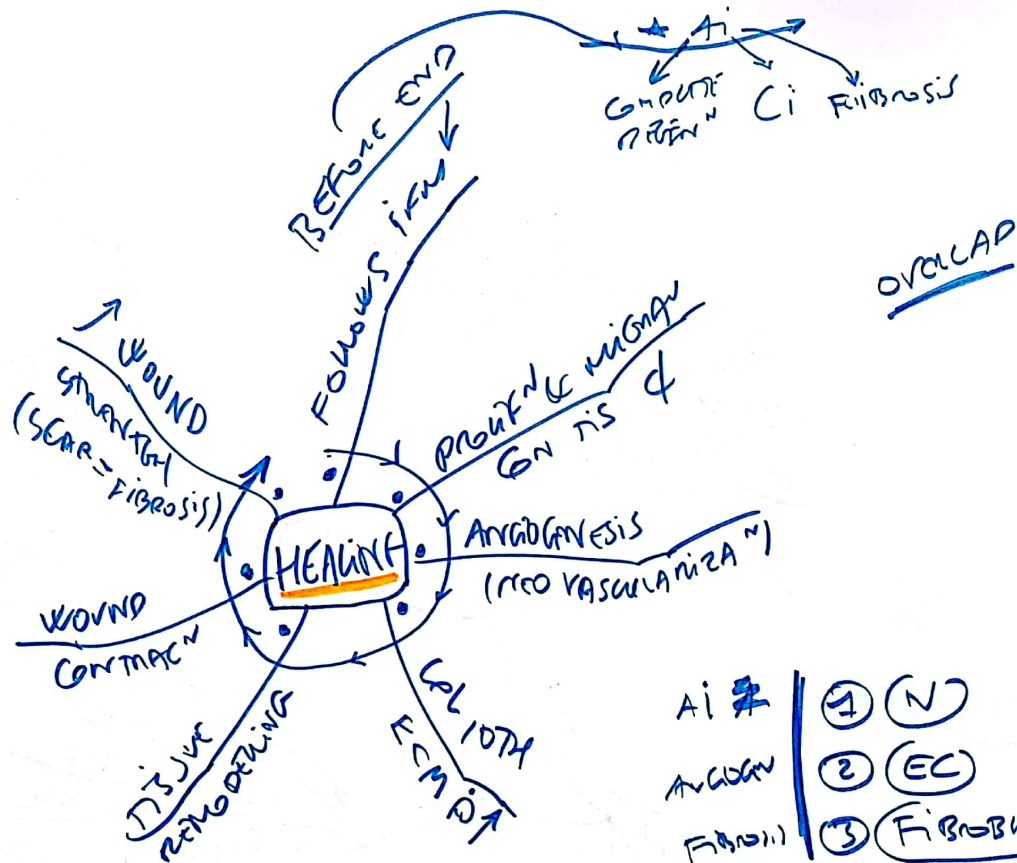 ★ Ai
COMPLETE
REGENᴺ
Ci
FiiBROSiS
BEFORE END
FOLLOWS iFM
OVERLAP
PROLIFᴺ & MiGRAᴺ
CON TiS ¢
ANGiOGENESiS
(NEO VASCULARiZAᴺ)
COL / OTH
ECM
TiSSUE
REMODELiNG
WOUND
CONTRACᴺ
↗ WOUND
STRENGTH
(SCAR = FiBROSiS)
HEALiNG
Ai
① N
ANGiOGEN
② EC
FiBROSiS
③ FiBROBL